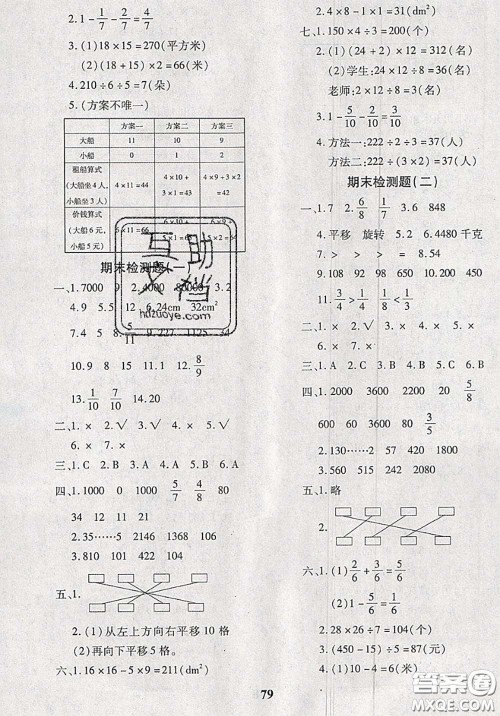 2. 1-1/7-2/7=4/7
3. (1) 18×15=270(平方米)
(2) (18+15)×2=66(米)
4. 210÷6÷5=7(朵)
5. (方案不唯一)
方案一 方案二 方案三
大船 11 10 9
小船 0 1 2
租船算式(大船坐4人,小船坐3人) 4×11=44 4×10+3×1=43 4×9+3×2=42
价钱算式(大船6元,小船5元)
期末检测题(一)
一、1. 7000 9 2. 4000 80000 3. 2
4. 9 5. 12 6. 24cm 32cm²
7. 4 5/11 8. 9 9. 227 1125 34
10. 9 14 8 11. 12 12. 8/9
13. 1/10 7/10 14. 20
二、1. × 2. × 3. √ 4. √ 5. √
6. × 7. ×
三、1. C 2. B 3. A 4. B 5. B
四、1. 1000 0 1000 5/7 4/8 80
34 12 11 21
2. 35……5 2146 1368 106
3. 810 421 122 58
五、1.
2. (1) 从左上方向右平移10格
(2) 再向下平移5格。
六、1. 16×16-5×9=211(dm²)
2. 4×8-1×1=31(dm²)
七、1. 150×4÷3=200(个)
2. (1) (24+2)×12=312(名)
(2) 学生: 24×12=288(名)
老师: 2×12÷8=3(名)
3. 1-5/10-2/10=3/10
4. 方法一: 222÷2÷3=37(人)
方法二: 222÷(3×2)=37(人)
期末检测题(二)
一、1. 7 2. 6/8 1/7 3. 6 848
4. 平移 旋转 5. 2 6. 4480 千克
7. > < > 8. > 8. 54
9. 10 108 98 10. 9200 450 650
11. 3/4>1/4 1/8<1/3
二、1. × 2. √ 3. × 4. × 5. √
6. × 7. ×
三、1. D 2. C 3. B 4. A 5. B 6. C
四、1. 2000 3600 2200 200 5/6
600 5600 58 80 3/5
2. 130……2 6 1760 540
3. 560 515 54 152
五、1. 略
2.
六、1. (1) 2/6+3/6=5/6
(2) 1-5/6=1/6
2. 28×26÷7=104(个)
3. (450-15)÷5=87(元)
4. (1) 10-4=6(米)
79
互助
档
huzuoye.com
答案圈
MXQE.COM